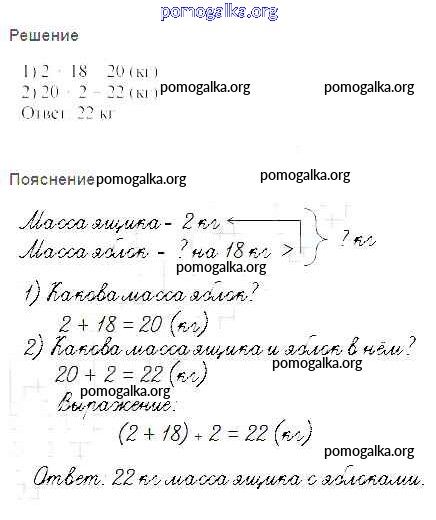 pomogalka.org
Решение
1) 2 · 18 – 20 (кг)
2) 20 · 2 – 22 (кг) pomogalka.org
Ответ 22 кг
Пояснение pomogalka.org pomogalka.org
Масса ящика - 2 кг
Масса яблок - ? на 18 кг > ? кг
pomogalka.org
1) Какова масса яблок?
2 + 18 = 20 (кг)
2) Какова масса ящика и яблок в нём?
20 + 2 = 22 (кг) pomogalka.org
pomogalka.org
Выражение:
(2 + 18) + 2 = 22 (кг)
pomogalka.org
Ответ: 22 кг масса ящика с яблоками.
pomogalka.org